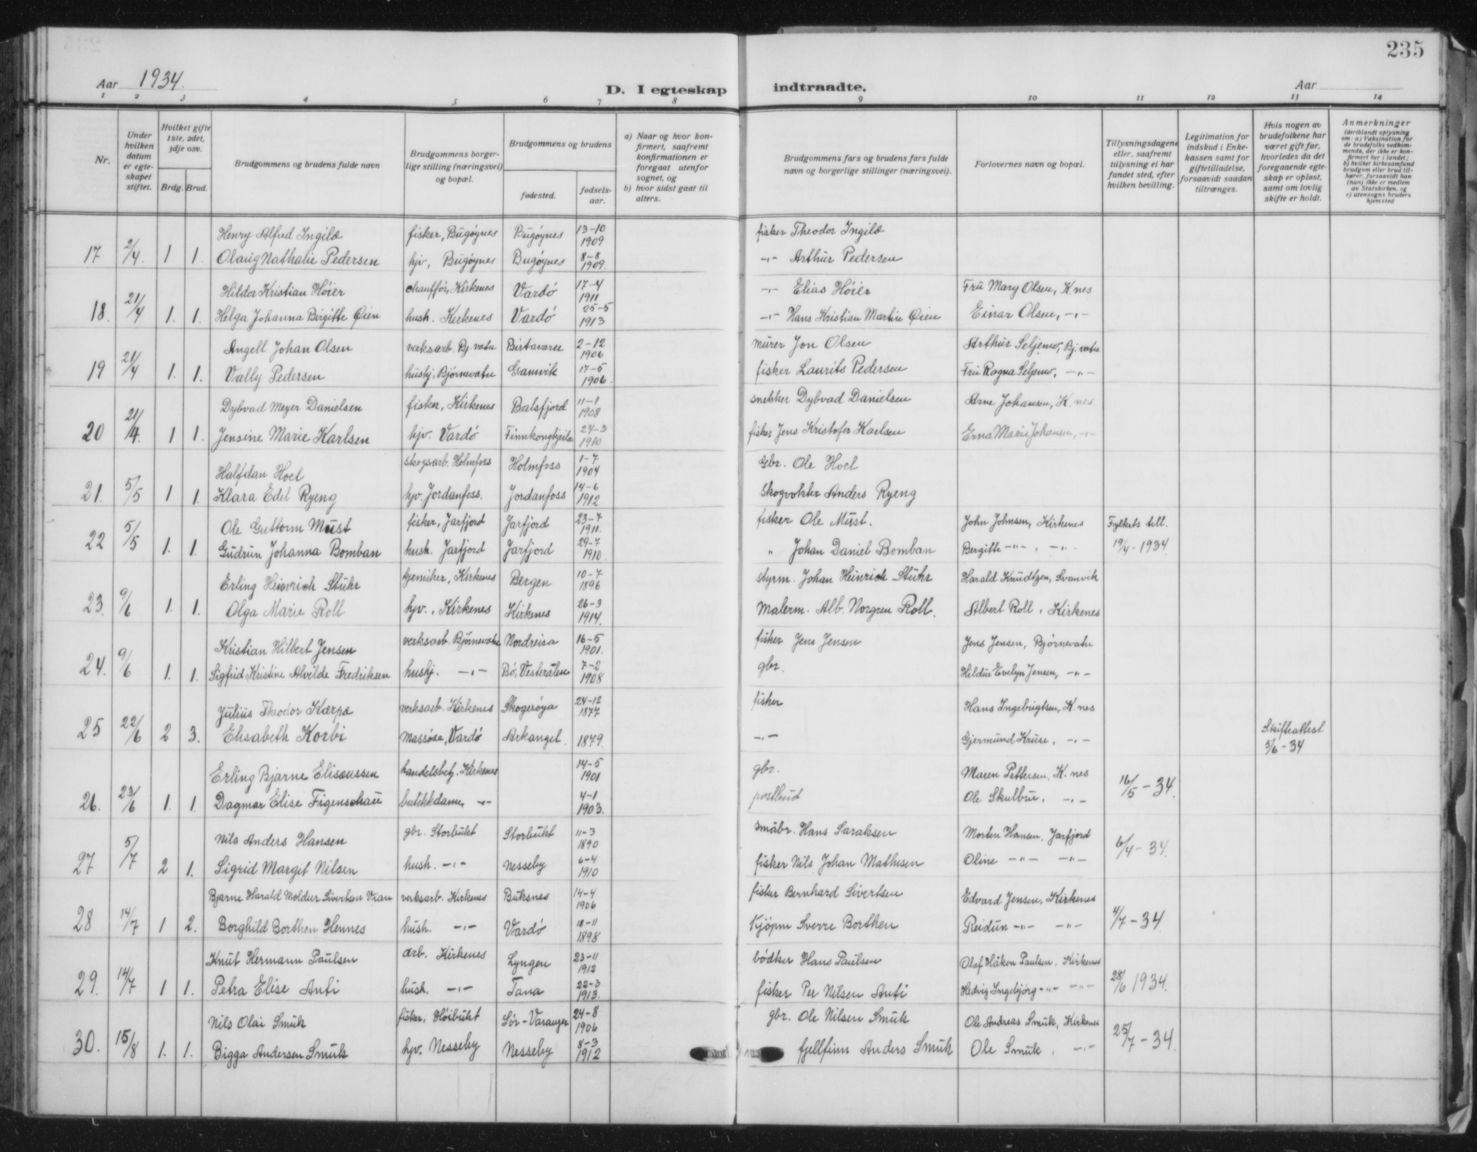 235
Aar 1934. D. I egteskap indtraadte. Aar
1 2 3 4 5 6 7 8 9 10 11 12 13 14
Nr.
Under hvilken datum er egteskapet stiftet.
Hvilket gifte 1ste, 2det, 3dje osv.
Brdg. Brud.
Brudgommens og brudens fulde navn
Brudgommens borgerlige stilling (næringsvei) og bopæl.
Brudgommens og brudens
fødested. fødselsaar.
a) Naar og hvor konfirmert, saafremt konfirmationen er foregaat utenfor sognet, og
b) hvor sidst gaat til alters.
Brudgommens fars og brudens fars fulde navn og borgerlige stillinger (næringsvei).
Forlovernes navn og bopæl.
Tillysningsdagene eller, saafremt tillysning ei har fundet sted, efter hvilken bevilling.
Legitimation for indskud i Enkekassen samt for giftetilladelse, forsaavidt saadan tiltrænges.
Hvis nogen av brudefolkene har været gift før, hvorledes da det foregaaende egteskap er opløst, samt om lovlig skifte er holdt.
Anmerkninger
17 2/4. 1 1. Henry Alfred Ingilæ fisker, Bugøynes Bugøynes 13-10 1909 fisker Theodor Ingilæ
Olaug Nathalie Pedersen hjv, Bugøynes Bugøynes 8-8 1909. -"- Arthur Pedersen
18. 21/4 1. 1. Hildor Kristian Høier chauffør, Kirkenes Vardø 17-4 1911 -"- Elias Høier Fru Mary Olsen, K.nes
Helga Johanna Birgitte Øien hush. Kirkenes Vardø 25-5 1913 -"- Hans Kristian Martin Øien Einar Olsen, -"-
19 21/4 1. 1. Angell Johan Olsen verksarb. Bj.vatn Birtavarre 2-12 1906 murer Jon Olsen Arthur Seljenes, Bj.vatn
Vally Pedersen hushj. Bjørnevatn Gamvik 17-5 1906. fisker Laurits Pedersen Fru Ragna Seljenes, -"-
20 21/4. 1 1. Dybvad Meyer Danielsen fisker, Kirkenes Balsfjord 11-1 1908 snekker Dybvad Danielsen Arne Johansen, K.nes
Jensine Marie Karlsen hjv. Vardø Finnkongkjeila 24-3 1910 fisker Jens Kristofer Karlsen Erna Marie Johansen, -"-
21. 5/5 1 1. Halfdan Hoel skogsarb. Holmfoss Holmfoss 1-7 1904 Gbr. Ole Hoel
Klara Edel Ryeng hjv. Jordanfoss. Jordanfoss 14-6 1912 Skogvokter Anders Ryeng
22 5/5 1. 1. Ole Guttorm Must fisker, Jarfjord Jarfjord 23-7 1911. fisker Ole Must. John Johnsen, Kirkenes Fylkets till.
Gudrun Johanna Bomban hush. Jarfjord Jarfjord 29-7 1910 " Johan Daniel Bomban Bergitte -"- , -"- 19/4-1934
23. 9/6 1. 1. Erling Heinrich Stuhr kjemiker, Kirkenes Bergen 10-7 1896 styrm. Johan Heinrich Stuhr Harald Knudtzen, Svanvik
Olga Marie Roll hjv., Kirkenes Kirkenes 26-3 1914. Malerm. Alb. Norgren Roll. Albert Roll, Kirkenes
24. 9/6 1. 1. Kristian Hilbert Jensen verksarb. Bjørnevatn Nordreisa 16-5 1901. fisker Jens Jensen Jens Jensen, Bjørnevatn
Sigfrid Kristine Alvilde Fredriksen hushj. -"- Bø, Vesterålen 7-2 1908 gbr. Hildur Evelyn Jensen, -"-
25 22/6 2 3. Julius Theodor Karpa verksarb. Kirkenes Skogerøya 24-12 1877 fisker Hans Ingebrigtsen, K.nes
Elisabeth Korbi Massøse, Vardø Arkangel. 1879. -"- Gjermund Kruse, -"- Skifteattest 5/6-34
26. 23/6 1. 1. Erling Bjarne Eliseussen handelsbetj. Kirkenes 14-5 1901 gbr. Maren Pettersen, K.nes 16/5-34.
Dagmar Elise Figenschau butikkdame, -"- 4-1 1903. postbud Ole Skulbru, -"-
27 5/7 2 1. Nils Anders Hansen gbr. Storbukt Storbukt 11-3 1890 småbr. Hans Saraksen Morten Hansen, Jarfjord 6/4-34.
Sigrid Margit Nilsen hush. -"- Nesseby 6-4 1910 fisker Nils Johan Mathisen Oline -"- -"-
28 14/7 1 2. Bjarne Harald Moldur verksarb. Kirkenes Buksnes 14-4 1906 fisker Bernhard Sivertsen Edvard Jensen, Kirkenes 4/7-34
Borghild Borthen Hennes hush. -"- Vardø 18-11 1898 Kjøpm Sverre Borthen Reidun -"- -"-
29. 14/7 1 1. Knut Hermann Paulsen arb. Kirkenes Lyngen 23-11 1912 bødker Hans Paulsen Olaf Håkon Paulsen, Kirkenes 28/6 1934.
Petra Elise Anti hush. -"- Tana 22-3 1913. fisker Per Nilsen Anti Hedvig Ingebjørg -"- -"-
30. 15/8 1. 1. Nils Olai Smuk fisker, Høibukt Sør-Varanger 24-8 1906 gbr. Ole Nilsen Smuk Ole Andreas Smuk, Kirkenes 25/7-34.
Bigga Andersen Smuk hjv. Nesseby Nesseby 8-3 1912 fjellfinn Anders Smuk Ole Smuk, -"-